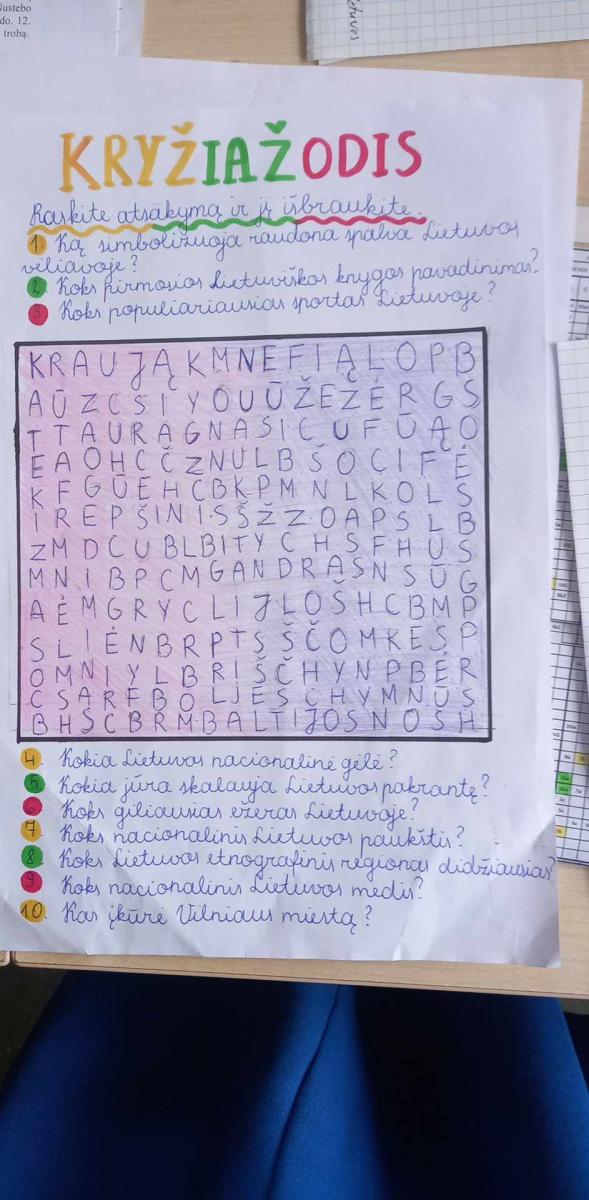 Nustebo
do. 12.
trobą.
KRYŽIAŽODIS
Raskite atsakymą ir jį išbraukite.
1. Ką simbolizuoja raudona spalva Lietuvos
vėliavoje?
2. Koks pirmosios Lietuviškos knygos pavadinimas?
3 Koks populiariausias sportas Lietuvoje?
K R A U J Ą K M N E F I Ą L O P B
A Ū Z C S I Y O U Ū Ž E Ž E R G S
T T A U R A G N A S I C U F Ū Ą O
E A O H C Č Z N U L B Š O C I F Ė
K F G Ū E H C B K P M N L K O L S
I R E P Š I N I S Š Ž Z O A P S L B
Z M D C U B L B I T Y C H S F H U S
M N I B P C M G A N D R A S N S Ū G
A Ė M G R Y C L I J L O Š H C B M P
S L I E N B R P T S Š Č O M K E S P
O M N I Y L B R I Š Č H Y N P B E R
C S A R F B O L J E S C H Y M N Ū S
B H S C B R M B A L T I J O S N O S H
4. Kokia Lietuvos nacionalinė gėlė?
5. Kokia jūra skalauja Lietuvos pakrantę?
6 Koks giliausias ežeras Lietuvoje?
7. Koks nacionalinis Lietuvos paukštis?
8. Koks Lietuvos etnografinis regionas didžiausias?
9. Koks nacionalinis Lietuvos medis?
10. Kas įkūrė Vilniaus miestą?